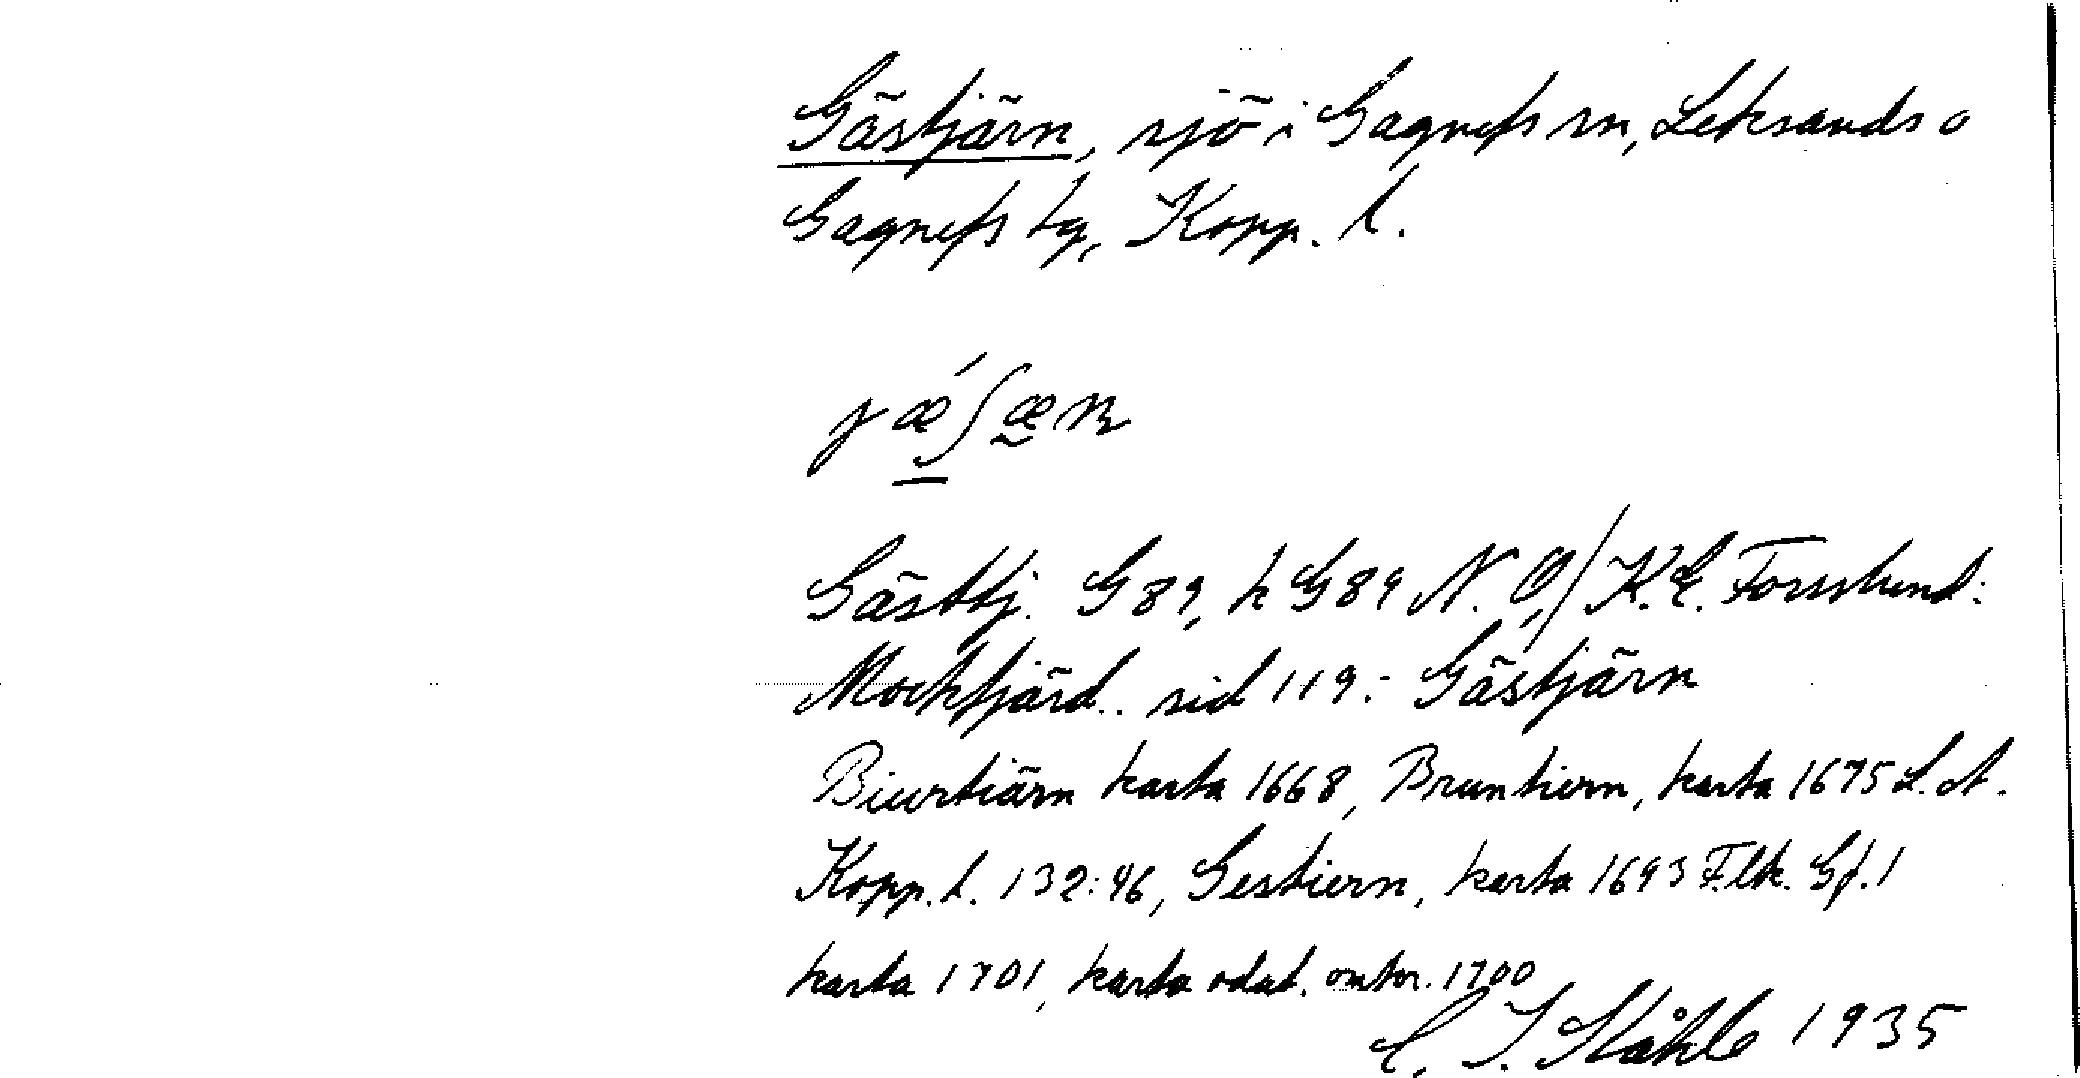 Gästjärn, sjö i Gagnefs sn, Leksands o
Gagnefs tg, Kopp. l.
Gästtj. G 89, h G 89 N. O,/K.E. Forsslund:
Mockfjärd.. sid 119: Gästjärn
Biurtiärn karta 1668, Bruntiern, karta 1675 L.A.
Kopp. l. 132:46, Gestiern, karta 1693 F.lk. Gf. 1
karta 1701, karta odat. omkr. 1700
C. I. Ståhle 1935